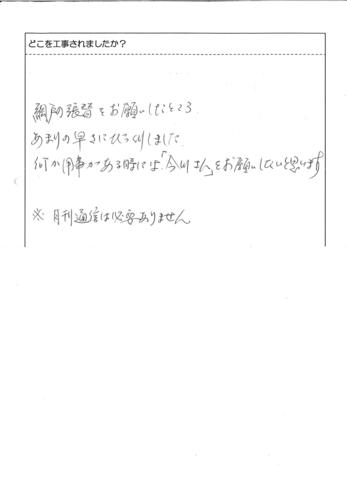 どこを工事されましたか？
網戸の張替をお願いしたところ
あまりの早さにびっくりしました
何か用事がある時には「今川さん」をお願いしたいと思います
※ 月刊通信は必要ありません